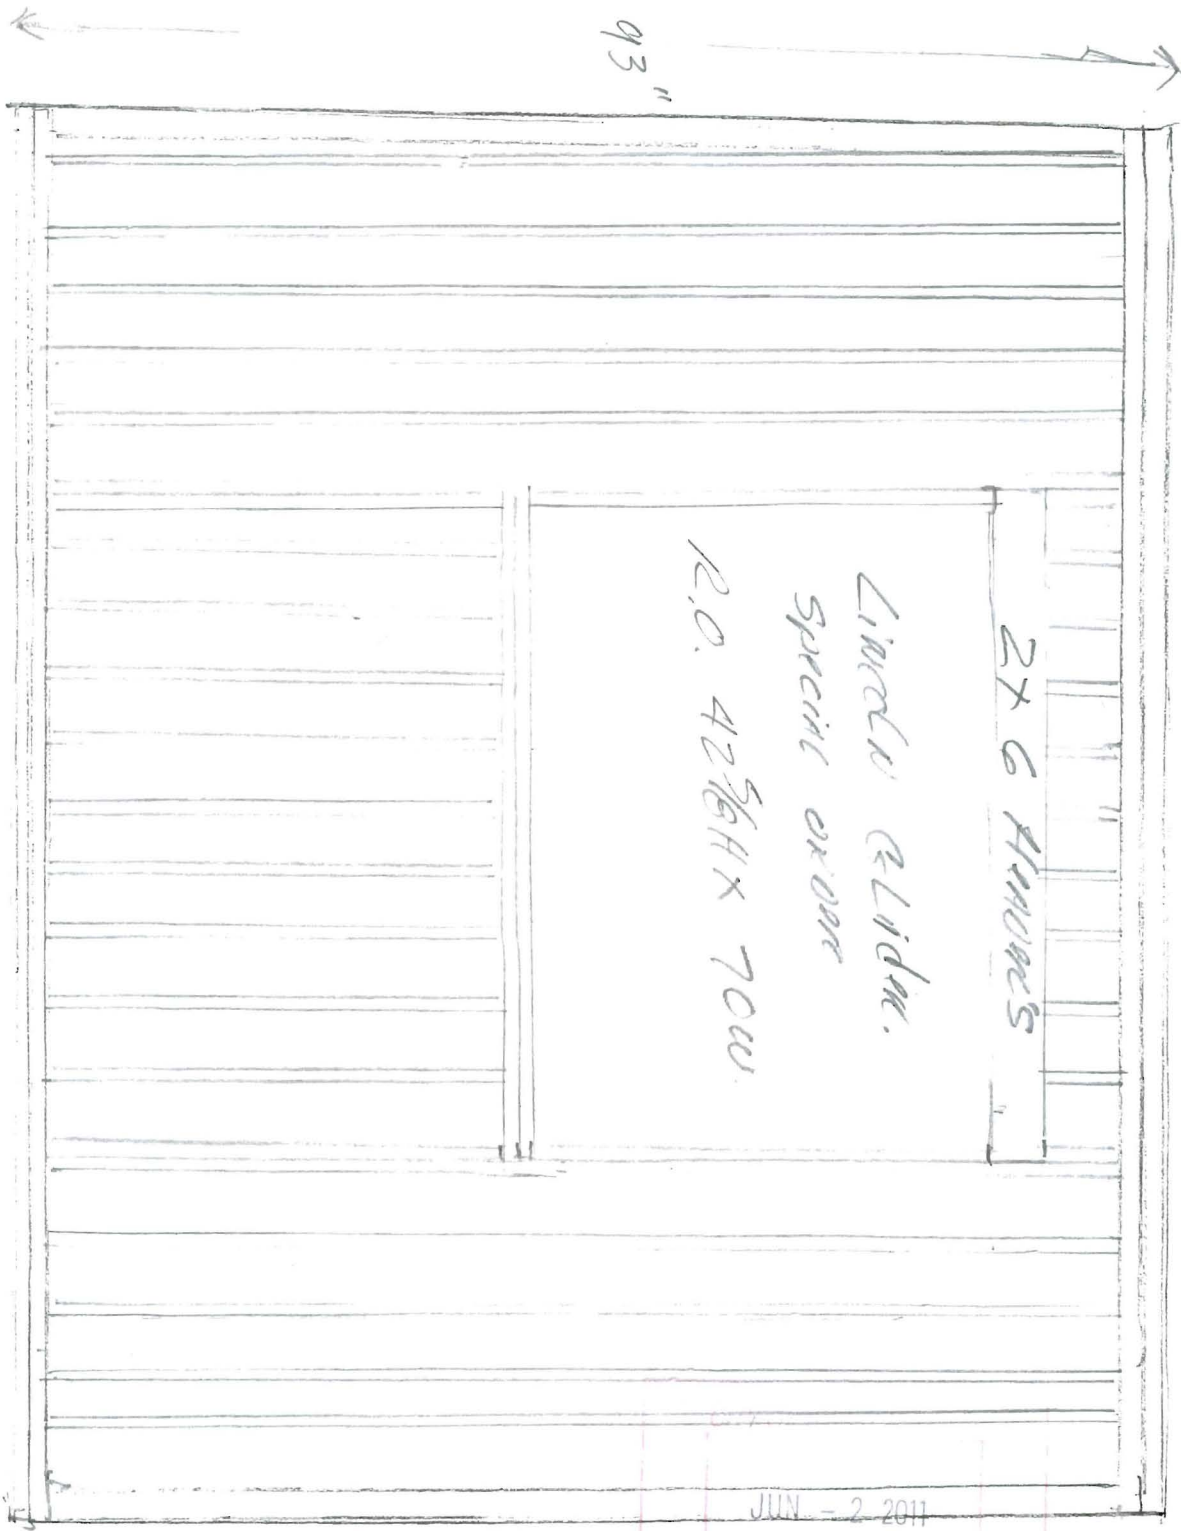 93"
2x6 Headers
Lincoln Glider.
Special order
R.O. 42 5/8 H x 70W.
JUN - 2 2011